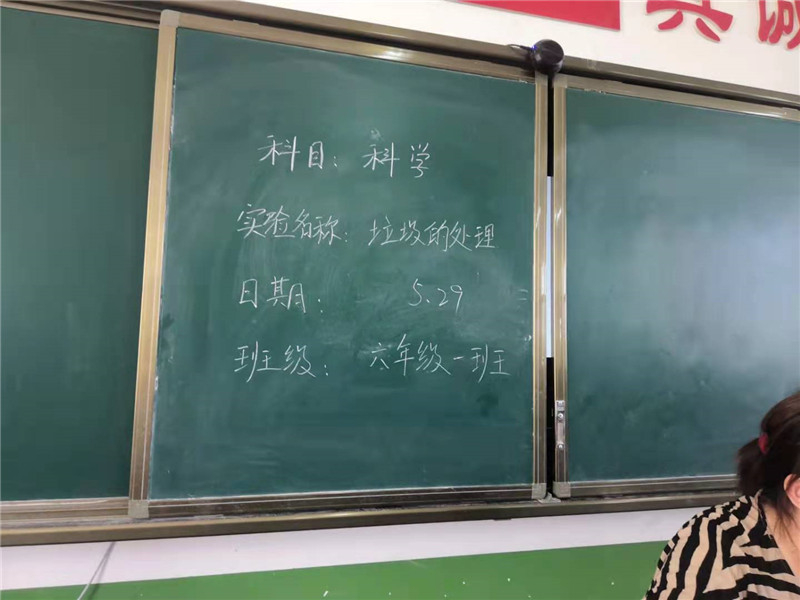 真诚
科目：科学
实验名称：垃圾的处理
日期：5.29
班级：六年级一班